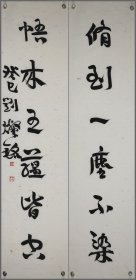 脩到一塵不染
悟來五蘊皆空
癸巳劉燦銘